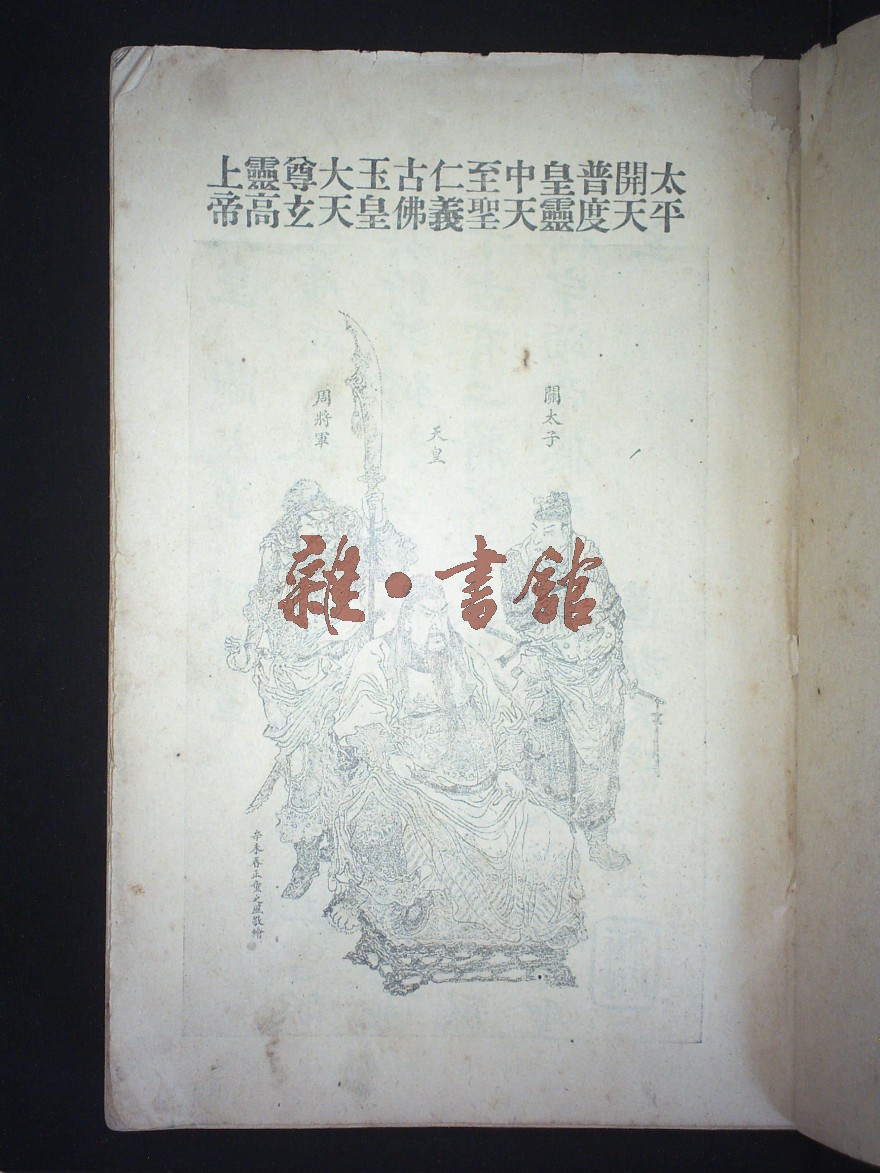 太平開天普度皇靈中天至聖仁義古佛玉皇大天尊玄靈高上帝
關太子
天皇
周將軍
雜·書館
辛未春正之敬繪